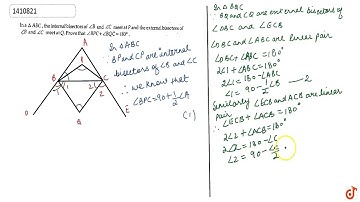 1410821
In a △ ABC, the internal bisectors of ∠B and ∠C meet at P and the external bisectors of
∠B and ∠C meet at Q. Prove that ∠BPC + ∠BQC = 180°.
A
P
B
C
1
1
2
2
D
Q
E
In △ABC
∵ BP and CP are internal
bisectors of ∠B and ∠C
∴ we know that
∠BPC = 90 + 1/2 ∠A
(1)
In △ABC
∵ BQ and CQ are external bisectors of
∠DBC and ∠ECB
∠DBC and ∠ABC are linear pair
∠DBC + ∠ABC = 180°
2∠1 + ∠ABC = 180°
2∠1 = 180 - ∠ABC
∠1 = 90 - 1/2 ∠B — 2
Similarly ∠ECB and ACB are linear
pair
∴ ∠ECB + ∠ACB = 180°
2∠2 + ∠ACB = 180°
2∠2 = 180 - ∠C
∠2 = 90 - ∠C/2